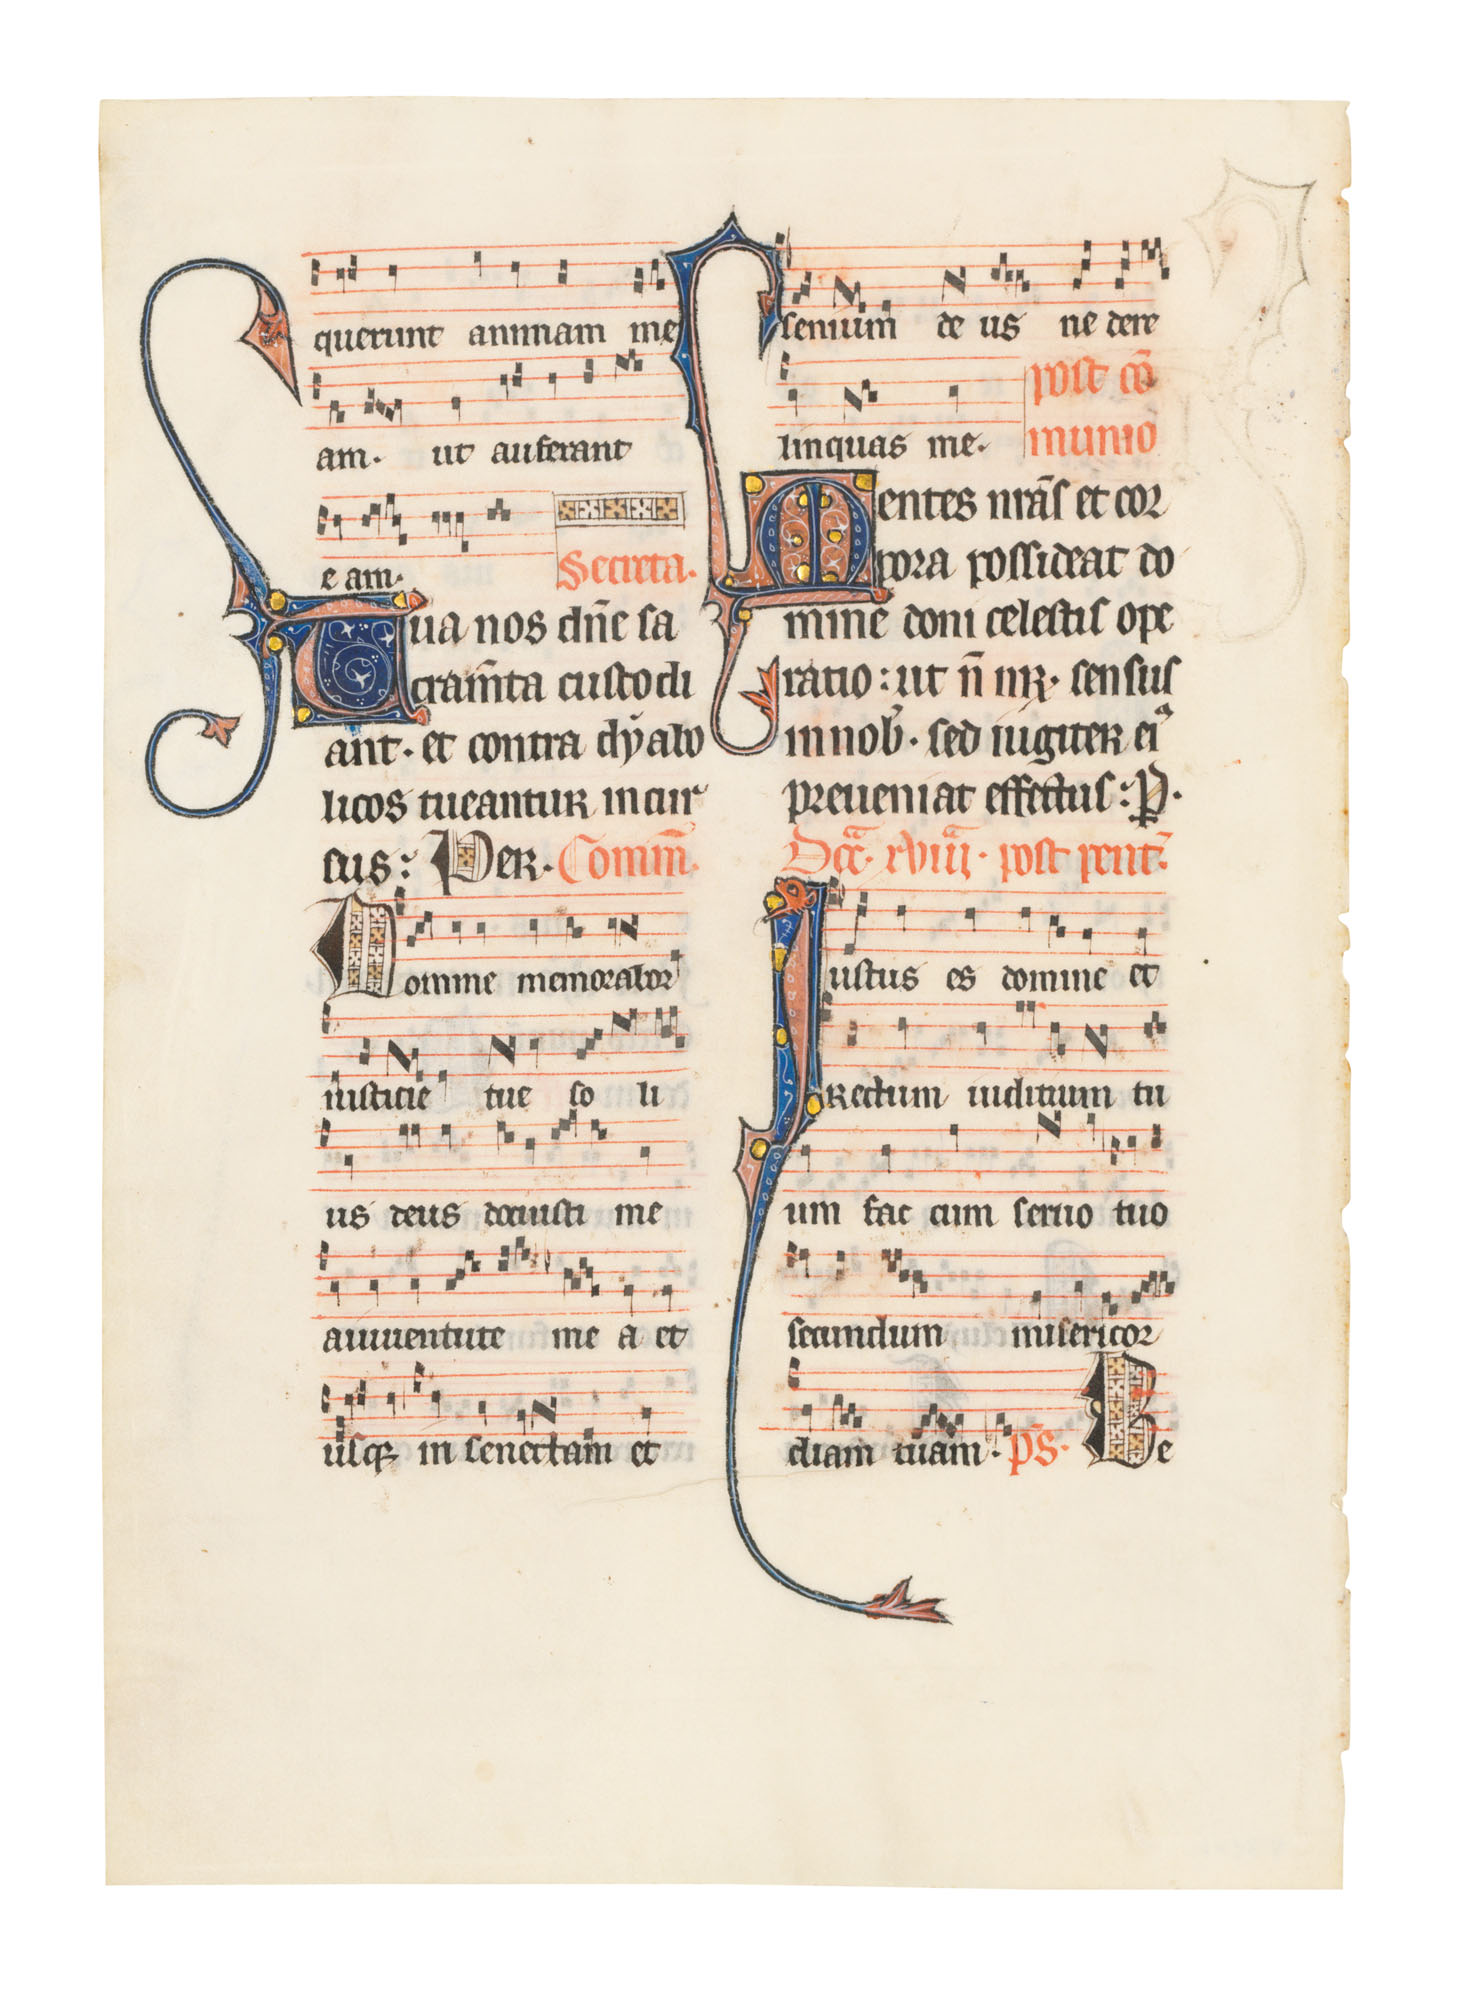 querunt animam me
am. ut auferant
e am.
Secreta.
Tua nos dn̄e sa
cram̄ta custodi
ant. et contra dẏabo
licos tueantur incur
sus: Per. Com̄m.
Domine memorabor
iusticie tue so li
us deus docuisti me
a iuuentute me a et
usq in senectam et
senium de us ne dere
linquas me.
post cō
munio
Mentes nrās et cor
pora possideat do
mine doni celestis ope
ratio: ut n̄ nr̄. sensus
in nob. sed iugiter eiᷓ
preueniat effectus: P.
Dcᷓa. xviiiᷓ. post pent.
Iustus es domine et
rectum iuditium tu
um fac cum seruo tuo
secundum misericor
diam tuam. p̄s. Be